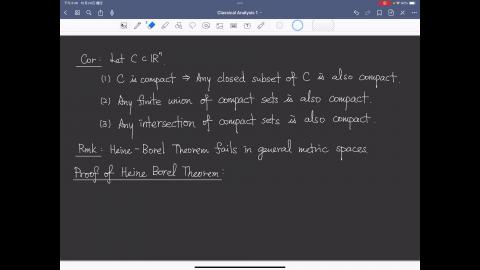 Classical Analysis 1
Cor: Let C ⊂ ℝⁿ.
(1) C is compact ⇒ Any closed subset of C is also compact.
(2) Any finite union of compact sets is also compact.
(3) Any intersection of compact sets is also compact.
Rmk: Heine-Borel Theorem fails in general metric spaces
Proof of Heine Borel Theorem: